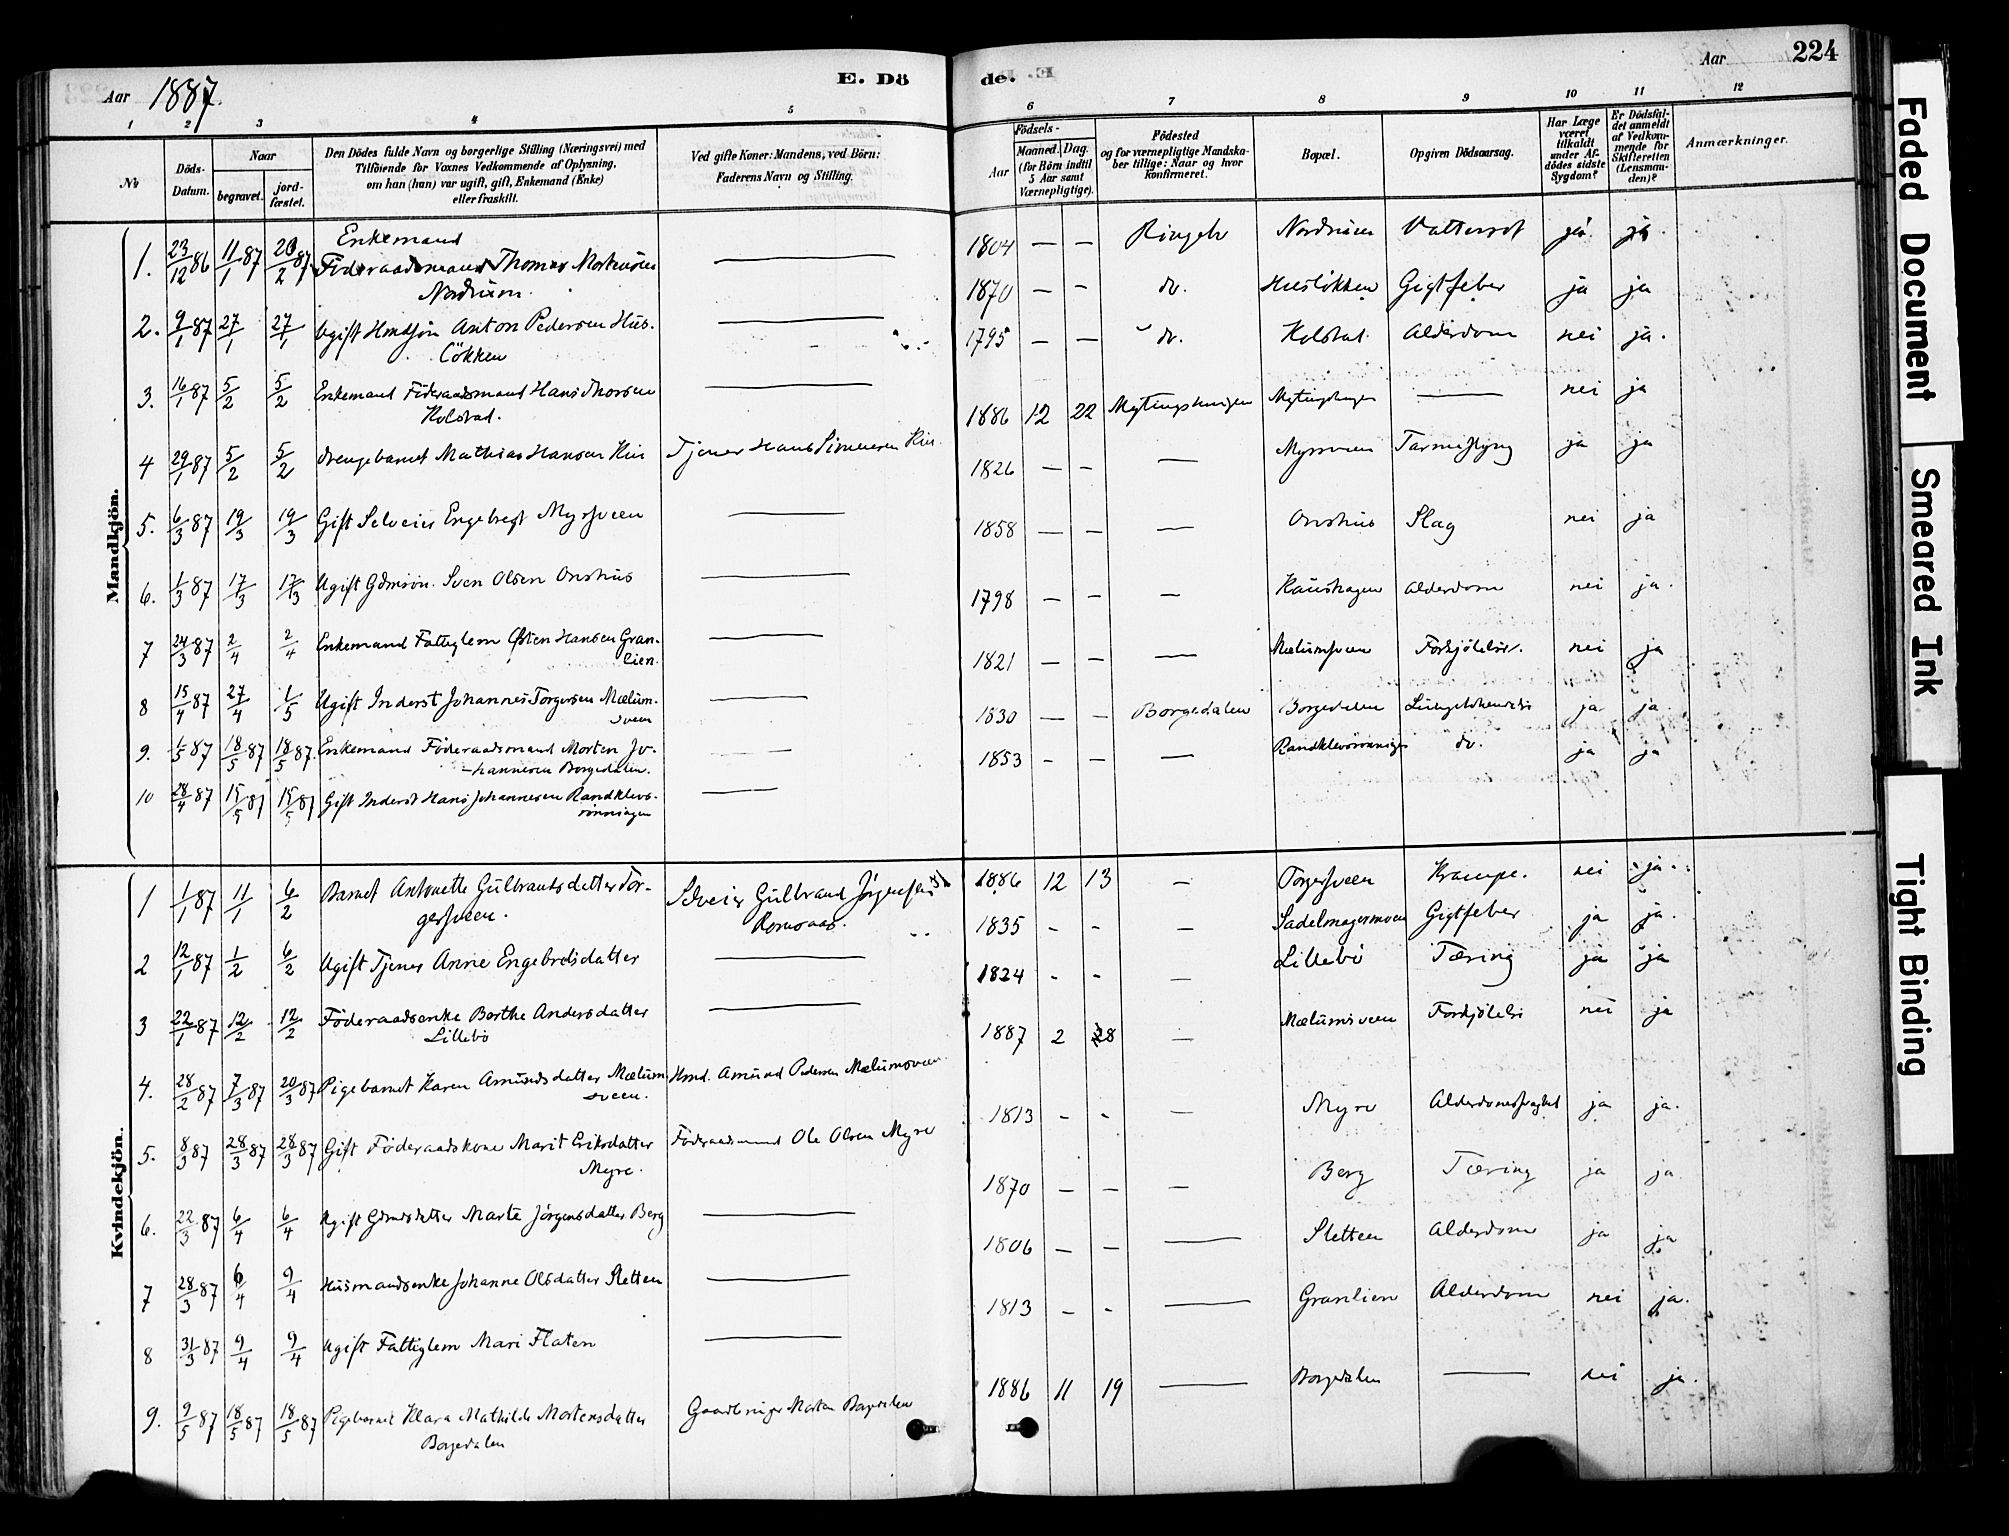 Aar 1887.
E. Dö
de.
Aar
224
1 2 3 4 5
6 7 8 9 10 11 12
No
Döds-Datum.
Naar
begravet.
jord-fæstet.
Den Dödes fulde Navn og borgerlige Stilling (Næringsvei) med
Tilföiende for Voxnes Vedkommende af Oplysning,
om han (hun) var ugift, gift, Enkemand (Enke)
eller fraskilt.
Ved gifte Koner: Mandens, ved Börn:
Faderens Navn og Stilling.
Födsels-
Aar
Maaned. Dag.
(for Börn indtil
5 Aar samt
Værnepligtige).
Födested
og for værnepligtige Mandska-
ber tillige: Naar og hvor
Konfirmeret.
Bopæl.
Opgiven Dödsaarsag.
Har Læge
været
tilkaldt
under Af-
dödes sidste
Sygdom?
Er Dödsfal-
det anmeldt
af Vedkom-
mende for
Skifteretten
(Lensman-
den)?
Anmærkninger.
Mandkjön.
1. 23/12 86 11/1 87 20/2 87 Enkemand
Föderaadsmand Thomas Mortensen
Nordrum. — 1804 — — Ringebo Nordrum Vattersot ja ja.
2. 9/1 87 27/1 27/1 Ugift Hmdsön Anton Pedersen Hus-
lökken — 1870 — — do. Huslökken Gigtfeber ja ja
3. 16/1 87 5/2 5/2 Enkemand Föderaadsmand Hans Thorsen
Kolstad. — 1795 — — do. Kolstad. Alderdom nei ja.
4 29/1 87 5/2 5/2 Drengebarnet Mathias Hansen Tjener Hans Simensen 1886 12 22 — nei ja
5. 6/3 87 19/3 19/3 Gift Selveier Engebregt Myrsveen — 1826 — — — Myrsveen ja ja
6. 1/3 87 17/3 17/3 Ugift Gdmsön. Sven Olsen Onshus — 1858 — — — Onshus Slag nei ja
7 24/3 87 2/4 2/4 Enkemand Fattiglem Østen Hansen Gran-
lien. — 1798 — — — Alderdom nei ja.
8 15/4 87 27/4 1/5 Ugift Inderst Johannes Torgersen Mælum-
sveen — 1821 — — — Mælumsveen Forkjölelse. nei ja
9. 1/5 87 18/5 87 18/5 87. Enkemand Föderaadsmand Morten Jo-
hannesen Borgedalen. — 1830 — — Borgedalen Borgedalen ja ja
10 28/4 87 15/5 87 15/5 87 Gift Inderst Hans Johannesen Randklevs-
rönningen — 1853 — — — Randklevsrönningen do. ja ja
Kvindekjön.
1 1/1 87 11/1 6/2 Barnet Antonette Gulbrandsdatter Tor-
gersveen. Selveier Gulbrand Jörgensen
1886 12 13 — Torgersveen Krampe. nei ja.
2 12/1 87 1/2 6/2 Ugift Tjener Anne Engebretsdatter — 1835 - - — Sadelmagermoen Gigtfeber ja ja.
3 22/1 87 12/2 12/2 Föderaadsenke Berthe Andersdatter
Lillebö — 1824 - - — Lillebö Tæring ja ja
4. 28/2 87 7/3 87 20/3 87 Pigebarnet Karen Amundsdatter Mælum-
sveen. Hmd. Amund Pedersen Mælumsveen 1887 2 28 — Mælumsveen Forkjölelse nei ja
5. 8/3 87 28/3 87 28/3 87 Gift Föderaadskone Marit Eriksdatter
Myre. Föderaadsmand Ole Olsen Myre 1813 - - — Myre Alderdomssvaghed ja ja.
6. 22/3 87 6/4 6/4 Ugift Gdmdsdatter Marte Jörgensdatter Berg — 1870 — — — Berg Tæring ja ja
7 28/3 87 6/4 9/4 Husmandsenke Johanne Olsdatter Sletten — 1806 — — — Sletten Alderdom ja ja
8 31/3 87 9/4 9/4 Ugift Fattiglem Mari Flaten — 1813 — - — Granlien Alderdom nei ja.
9. 9/5 87 18/5 87 18/5 87 Pigebarnet Klara Mathilde Mortensdatter
Borgedalen Gaardbruger Morten Borgedalen 1886 11 19 — Borgedalen — nei ja.
Faded Document
Smeared Ink
Tight Binding